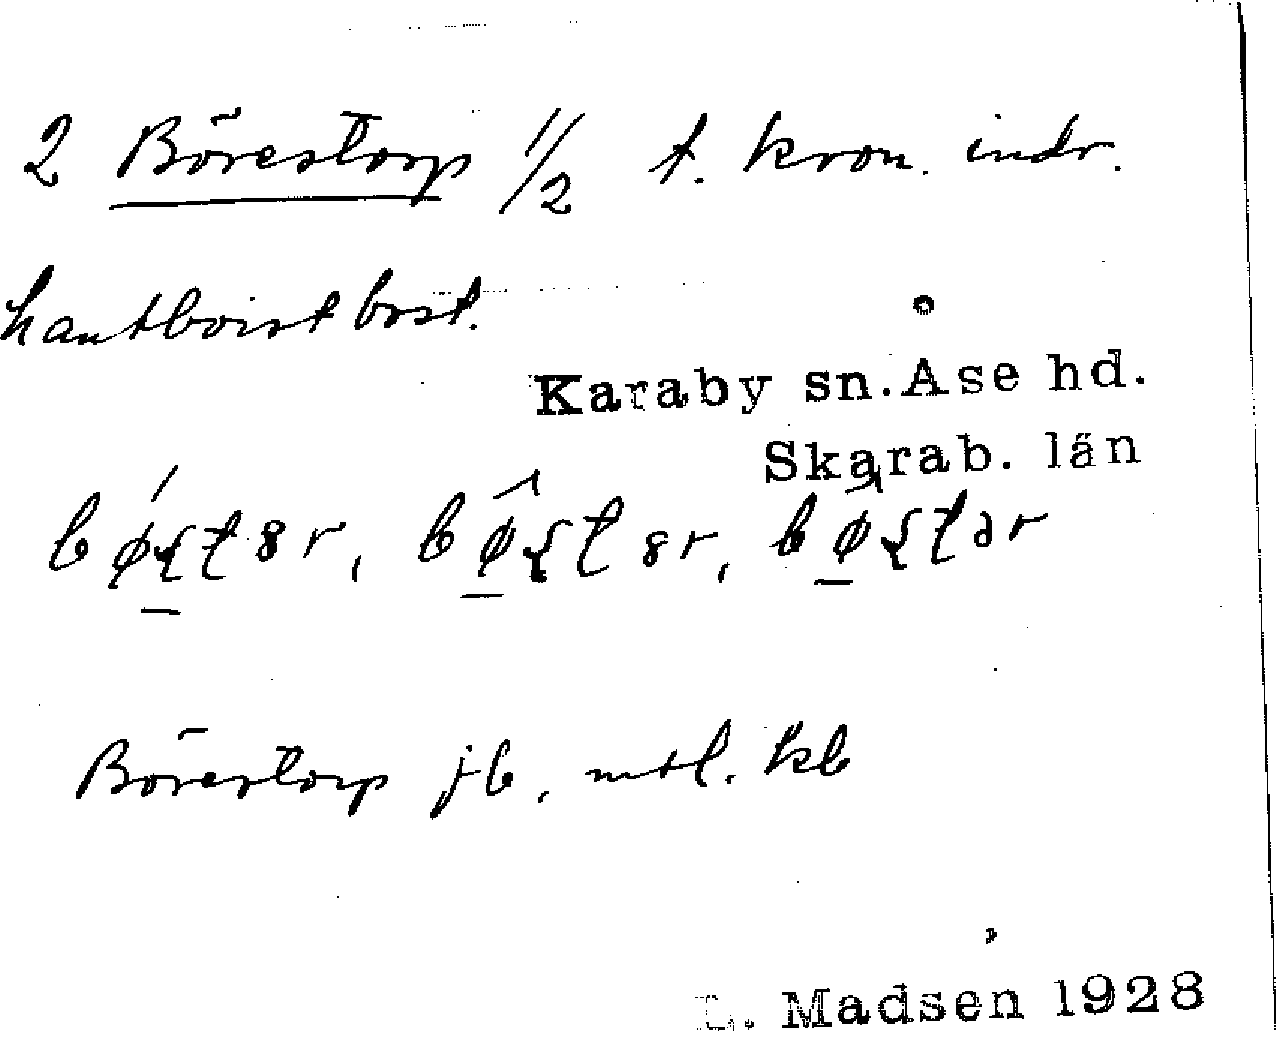 2 Börestorp 1/2 t. kron. indr.
hautboist bost.
Karaby sn. Åse hd.
Skarab. län
Börestorp jb, mtl. kb
L. Madsen 1928